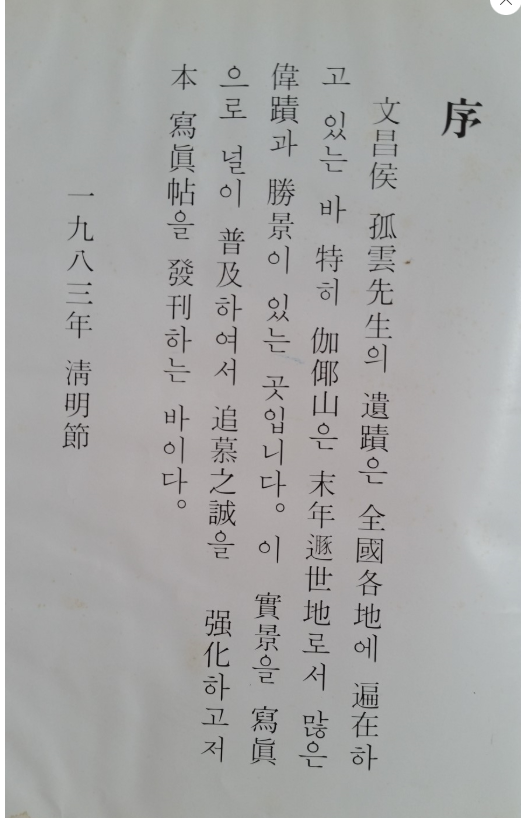 序
文昌侯 孤雲先生의 遺蹟은 全國各地에 遍在하
고 있는 바 特히 伽倻山은 末年遯世地로서 많은
偉蹟과 勝景이 있는 곳입니다。 이 實景을 寫眞
으로 널이 普及하여서 追慕之誠을 强化하고저
本 寫眞帖을 發刊하는 바이다。
一九八三年 淸明節